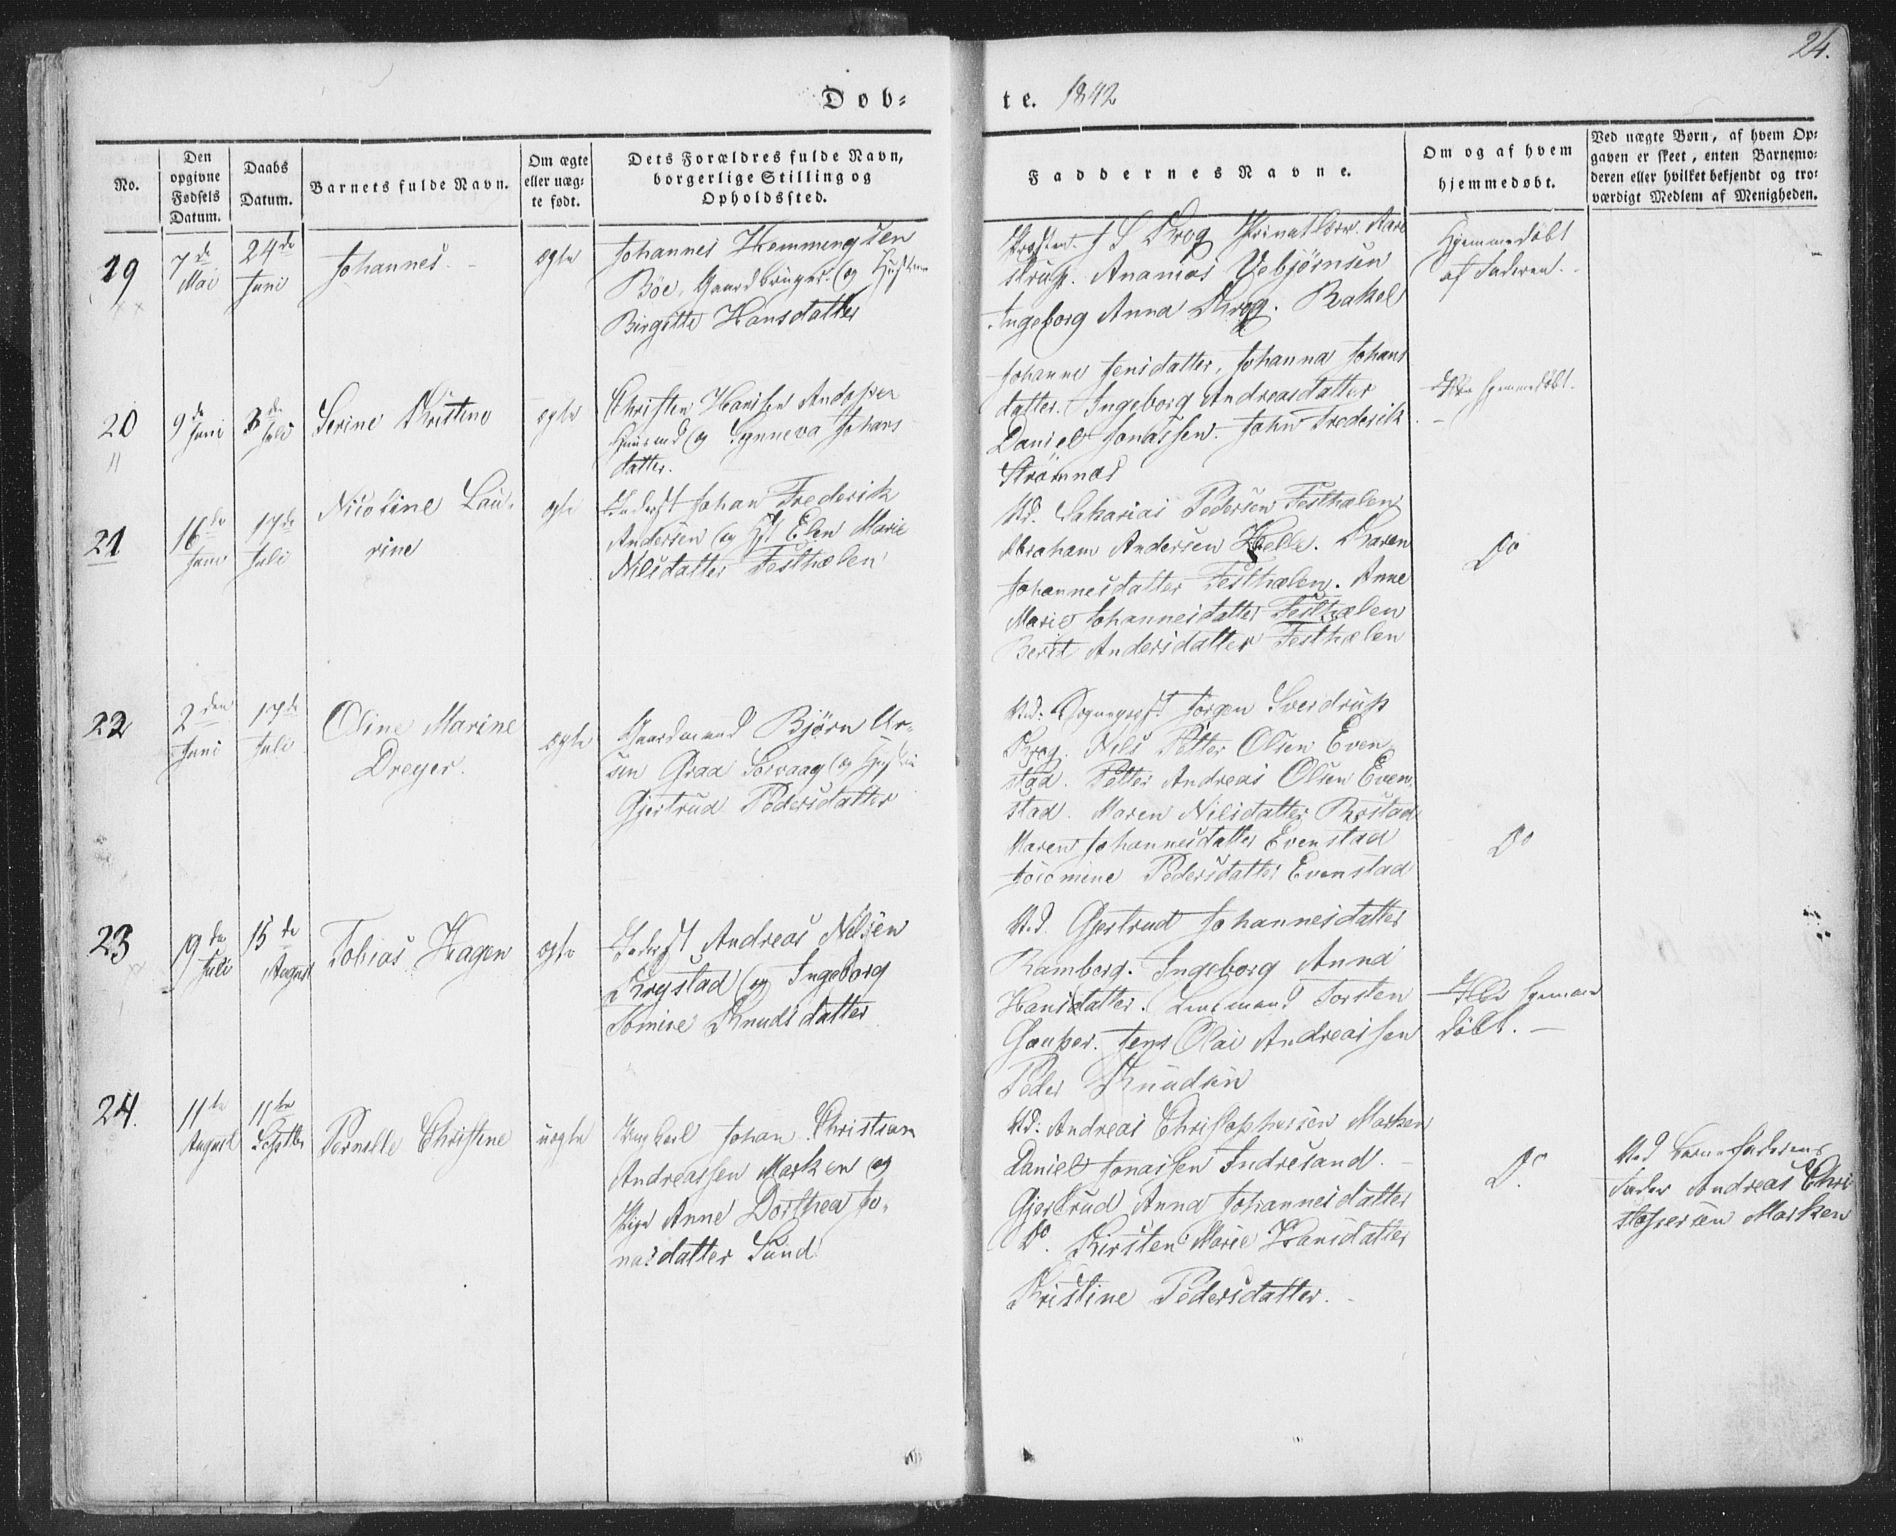 24.
Døb=
te. 1842
No.
Den opgivne Fødsels Datum.
Daabs Datum.
Barnets fulde Navn.
Om ægte eller uæg-
te født.
Dets Forældres fulde Navn,
borgerlige Stilling og
Opholdssted.
Faddernes Navne.
Om og af hvem
hjemmedøbt.
Ved uægte Børn, af hvem Op=
gaven er skeet, enten Barnemo=
deren eller hvilket bekjendt og tro=
værdigt Medlem af Menigheden.
19
7de Mai
24de Juni
Johannes.
ægte
Johannes Hemmingsen
Böe, Gaardbruger og Hustrue
Birgitte Hansdatter
J S Krog
Ananias Vebjørnsen
Ingeborg Anna Krog. Rakel
Hjemmedøbt
af Faderen.
20
9de Juni
3de Juli
Serine Kristine
ægte
Christen Hansen Andopen
Huusmd og Synneva Johans
datter.
Johanne Jensdatter, Johanna Johans
datter. Ingeborg Andreasdatter
Daniel Jonassen. John Frederik
Strömnæs
Ikke hjemmedøbt.
21
16de Juni
17de Juli
Nicoline Lau-
rine
ægte
Inderst Johan Frederik
Andersen og Hst Elen Marie
Nilsdatter Festhælen
Sakarias Pedersen Festhælen
Abraham Andersen Helle. Karen
Johannesdatter Festhælen. Anne
Marie Johannesdatter Festhælen
Berit Andersdatter Festhælen
Do
22
2den Juni
17de Juli
Oline Marine
Dreyer.
ægte
Gaardmand Björn Ur-
sen Graa Sørvaag og Hustru
Gjertrud Pedersdatter
Jörgen Sverdrup
Krog. Nils Petter Olsen Even
stad. Petter Andreas Olsen Even
stad. Maren Nilsdatter
Maren Johannesdatter Evenstad
Pedersdatter Evenstad
Do
23
19de Juli
15de August
Tobias Hagen
ægte
Inderst Andreas Nilsen
Krystad og Ingeborg
Tomine Knudsdatter
Gjertrud Johannesdatter
Ramberg. Ingeborg Anna
Hansdatter. Lensmand Torsten
Jens Olai Andreassen
Peder Knudsen
Ikke hjemme
døbt.
24.
11te August
11te Septbr
Pernelle Christine
uægte
Ungkarl Johan Christian
Andreassen Marken og
Pige Anne Dorthea Jo-
nasdatter Sund
Andreas Christophersen Marken
Daniel Jonassen Indresand.
Gjertrud Anna Johannesdatter
Do. Kirsten Marie Hansdatter
Kristine Pedersdatter.
Do.
Ved Barnefaderens
Fader Andreas Chri
stophersen Marken